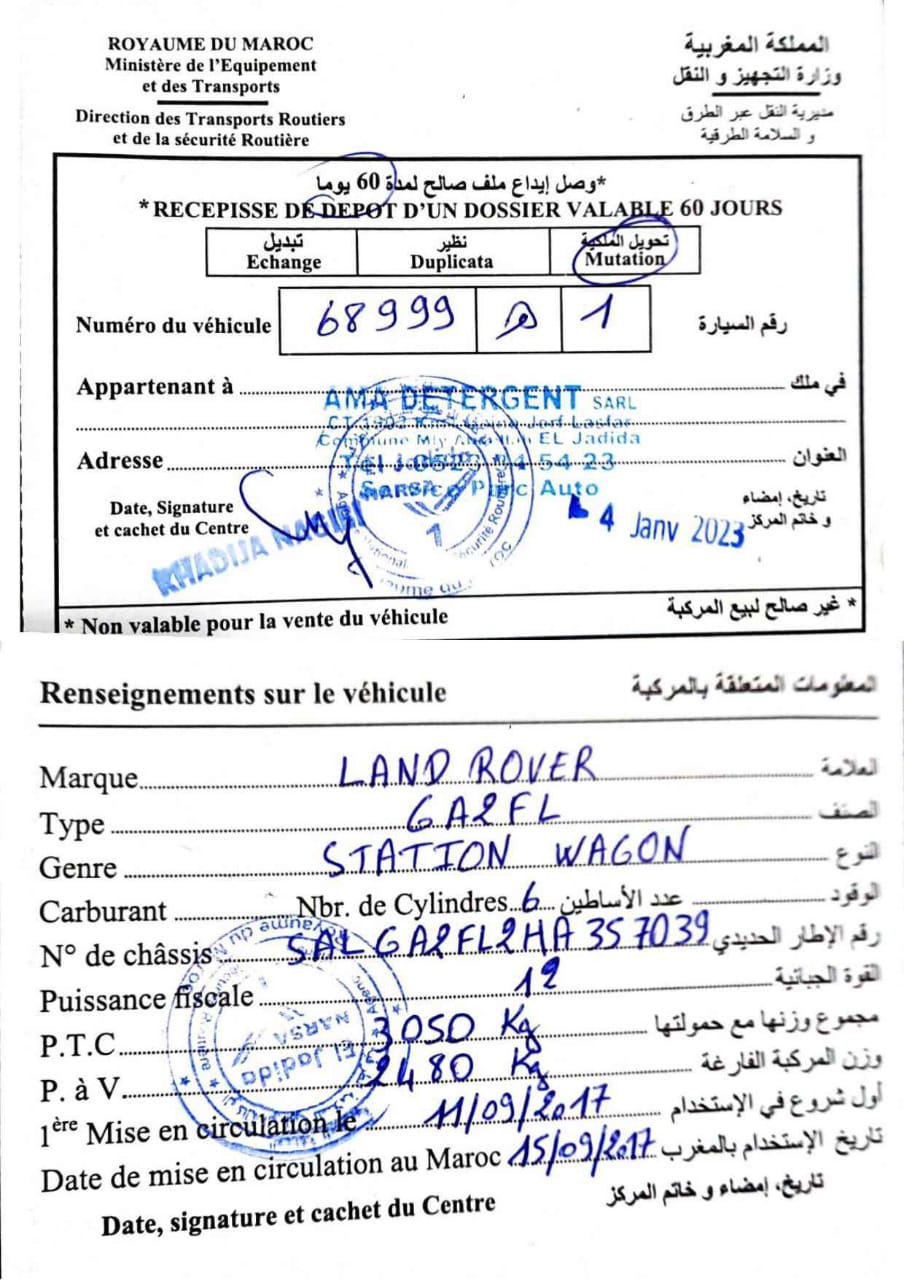 ROYAUME DU MAROC
Ministère de l'Equipement
et des Transports
Direction des Transports Routiers
et de la sécurité Routière
المملكة المغربية
وزارة التجهيز و النقل
مديرية النقل عبر الطرق
و السلامة الطرقية
*وصل إيداع ملف صالح لمدة 60 يوما
*RECEPISSE DE DEPOT D'UN DOSSIER VALABLE 60 JOURS
تبديل نظير تحويل الملكية
Echange Duplicata Mutation
Numéro du véhicule 68999 1 رقم السيارة
Appartenant à في ملك
AMA DETERGENT SARL
Jorf Lasfar
Commune Mly EL Jadida
Adresse العنوان
54 23
Parc Auto
Date, Signature
et cachet du Centre
تاريخ، إمضاء
و خاتم المركز
KHADIJA
4 Janv 2023
* Non valable pour la vente du véhicule * غير صالح لبيع المركبة
Renseignements sur le véhicule المعلومات المتعلقة بالمركبة
Marque LAND ROVER العلامة
Type GA2FL الصنف
Genre STATION WAGON النوع
Carburant Nbr. de Cylindres 6 عدد الأساطين الوقود
N° de châssis SALGA2FL2HA357039 رقم الإطار الحديدي
Puissance fiscale 12 القوة الجبائية
P.T.C 3050 Kg مجموع وزنها مع حمولتها
P. à V. 2480 Kg وزن المركبة الفارغة
1ère Mise en circulation le 11/09/2017 أول شروع في الإستخدام
Date de mise en circulation au Maroc 15/09/2017 تاريخ الإستخدام بالمغرب
Date, signature et cachet du Centre تاريخ، إمضاء و خاتم المركز
NARSA
El Jadida